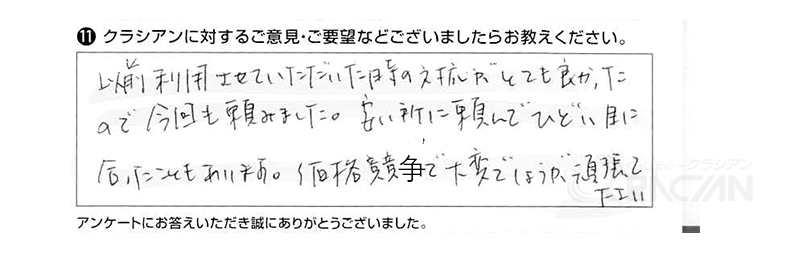 ⓫ クラシアンに対するご意見・ご要望などございましたらお教えください。
以前利用させていただいた時の対応がとても良かった
ので今回も頼みました。安い所に頼んでひどい目に
合ったこともあります。価格競争で大変でしょうが頑張って
下さい
アンケートにお答えいただき誠にありがとうございました。
暮らし安心クラシアン
QRACIAN